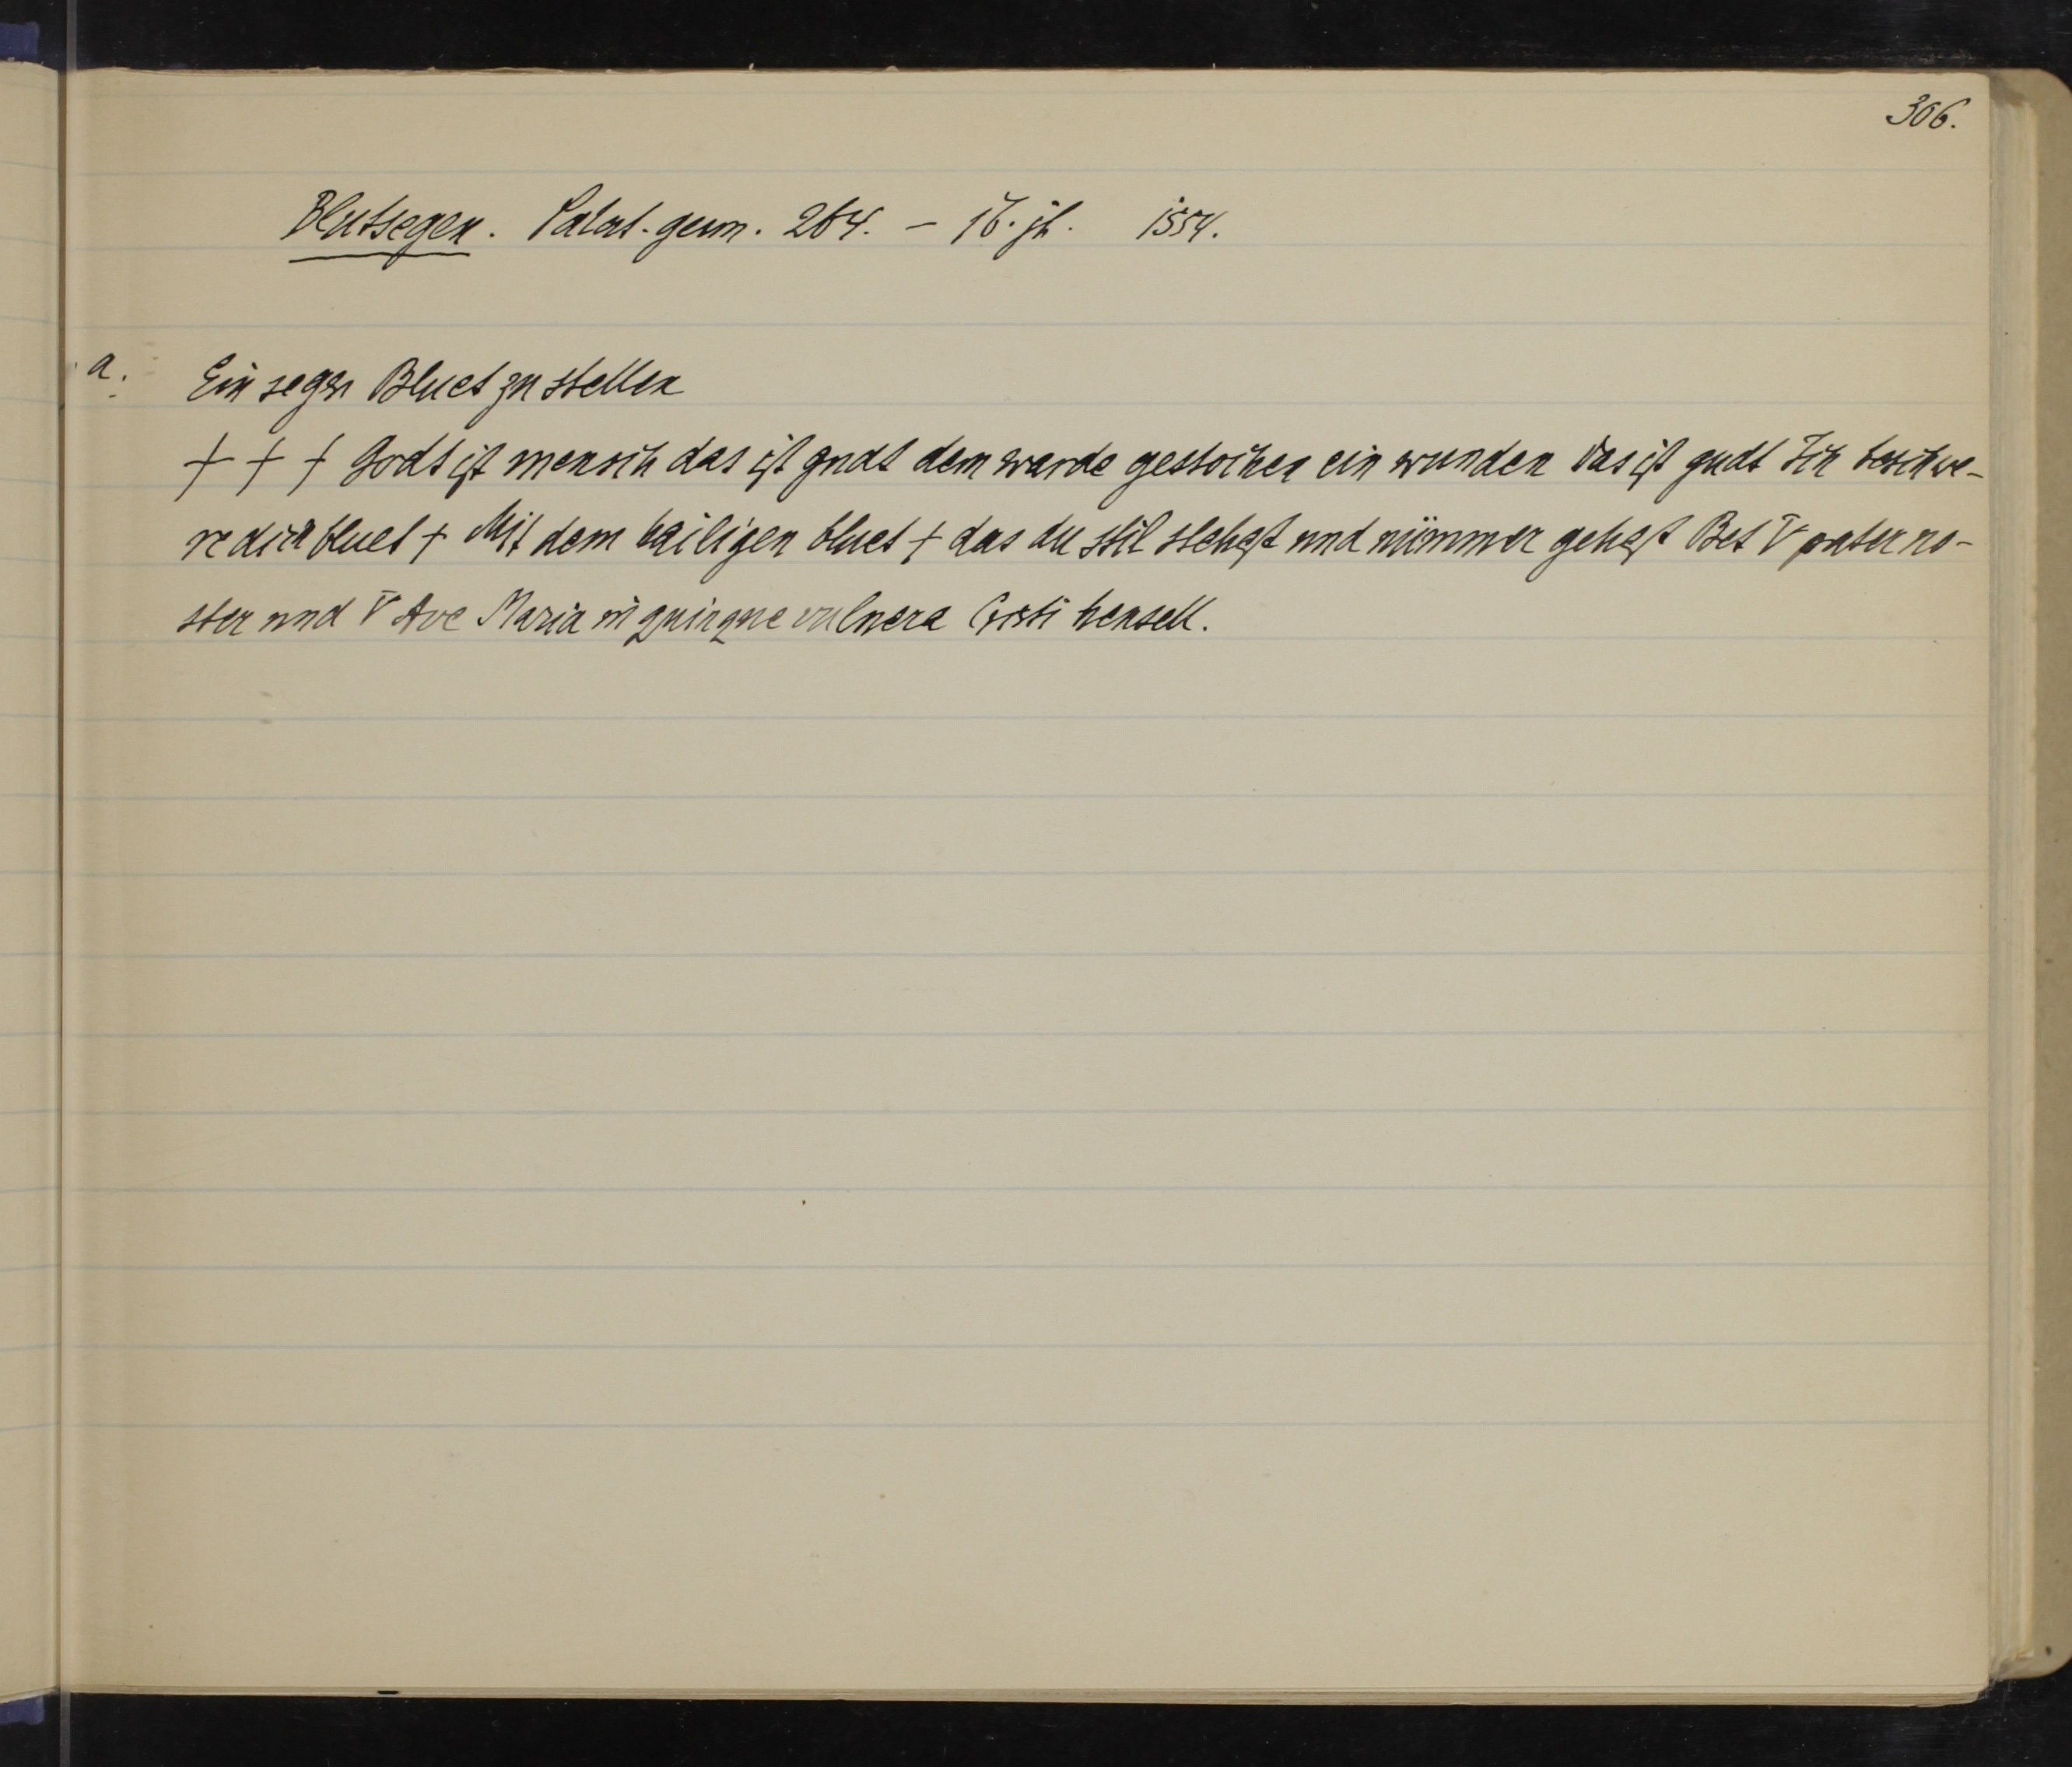 306.
Blutsegen. Palat. germ. 264. – 16. jh. 1554.
a. Ein segen Bluet zu stellen
+ + + Godt ist mensch das ist gudt dem warde gestochen ein wunden das ist gudt Ich beschwe-
re dich bluet + Mit dem hailigen bluet + das du stil stehest und nümmer gehest Bet V pater no-
ster und V Ave Maria in quinque vulnera Cristi